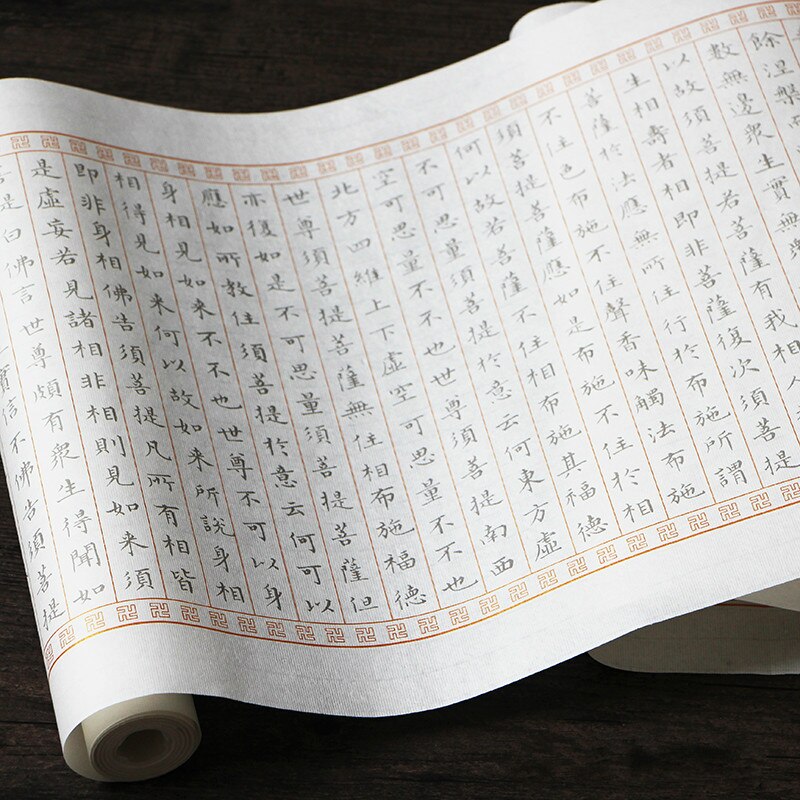 餘涅槃
數無邊眾生實無眾
以故須菩提若菩薩有我相人
生相壽者相即非菩薩復次須菩提
菩薩於法應無所住行於布施所謂
不住色布施不住聲香味觸法布施
須菩提菩薩應如是布施不住於相
何以故若菩薩不住相布施其福德
不可思量須菩提於意云何東方虛
空可思量不不也世尊須菩提南西
北方四維上下虛空可思量不不也
世尊須菩提菩薩無住相布施福德
亦復如是不可思量須菩提菩薩但
應如所教住須菩提於意云何可以
身相見如来不不也世尊不可以身
相得見如来何以故如来所說身相
即非身相佛告須菩提凡所有相皆
是虛妄若見諸相非相則見如来須
提白佛言世尊頗有眾生得聞如
實信不佛告須菩提